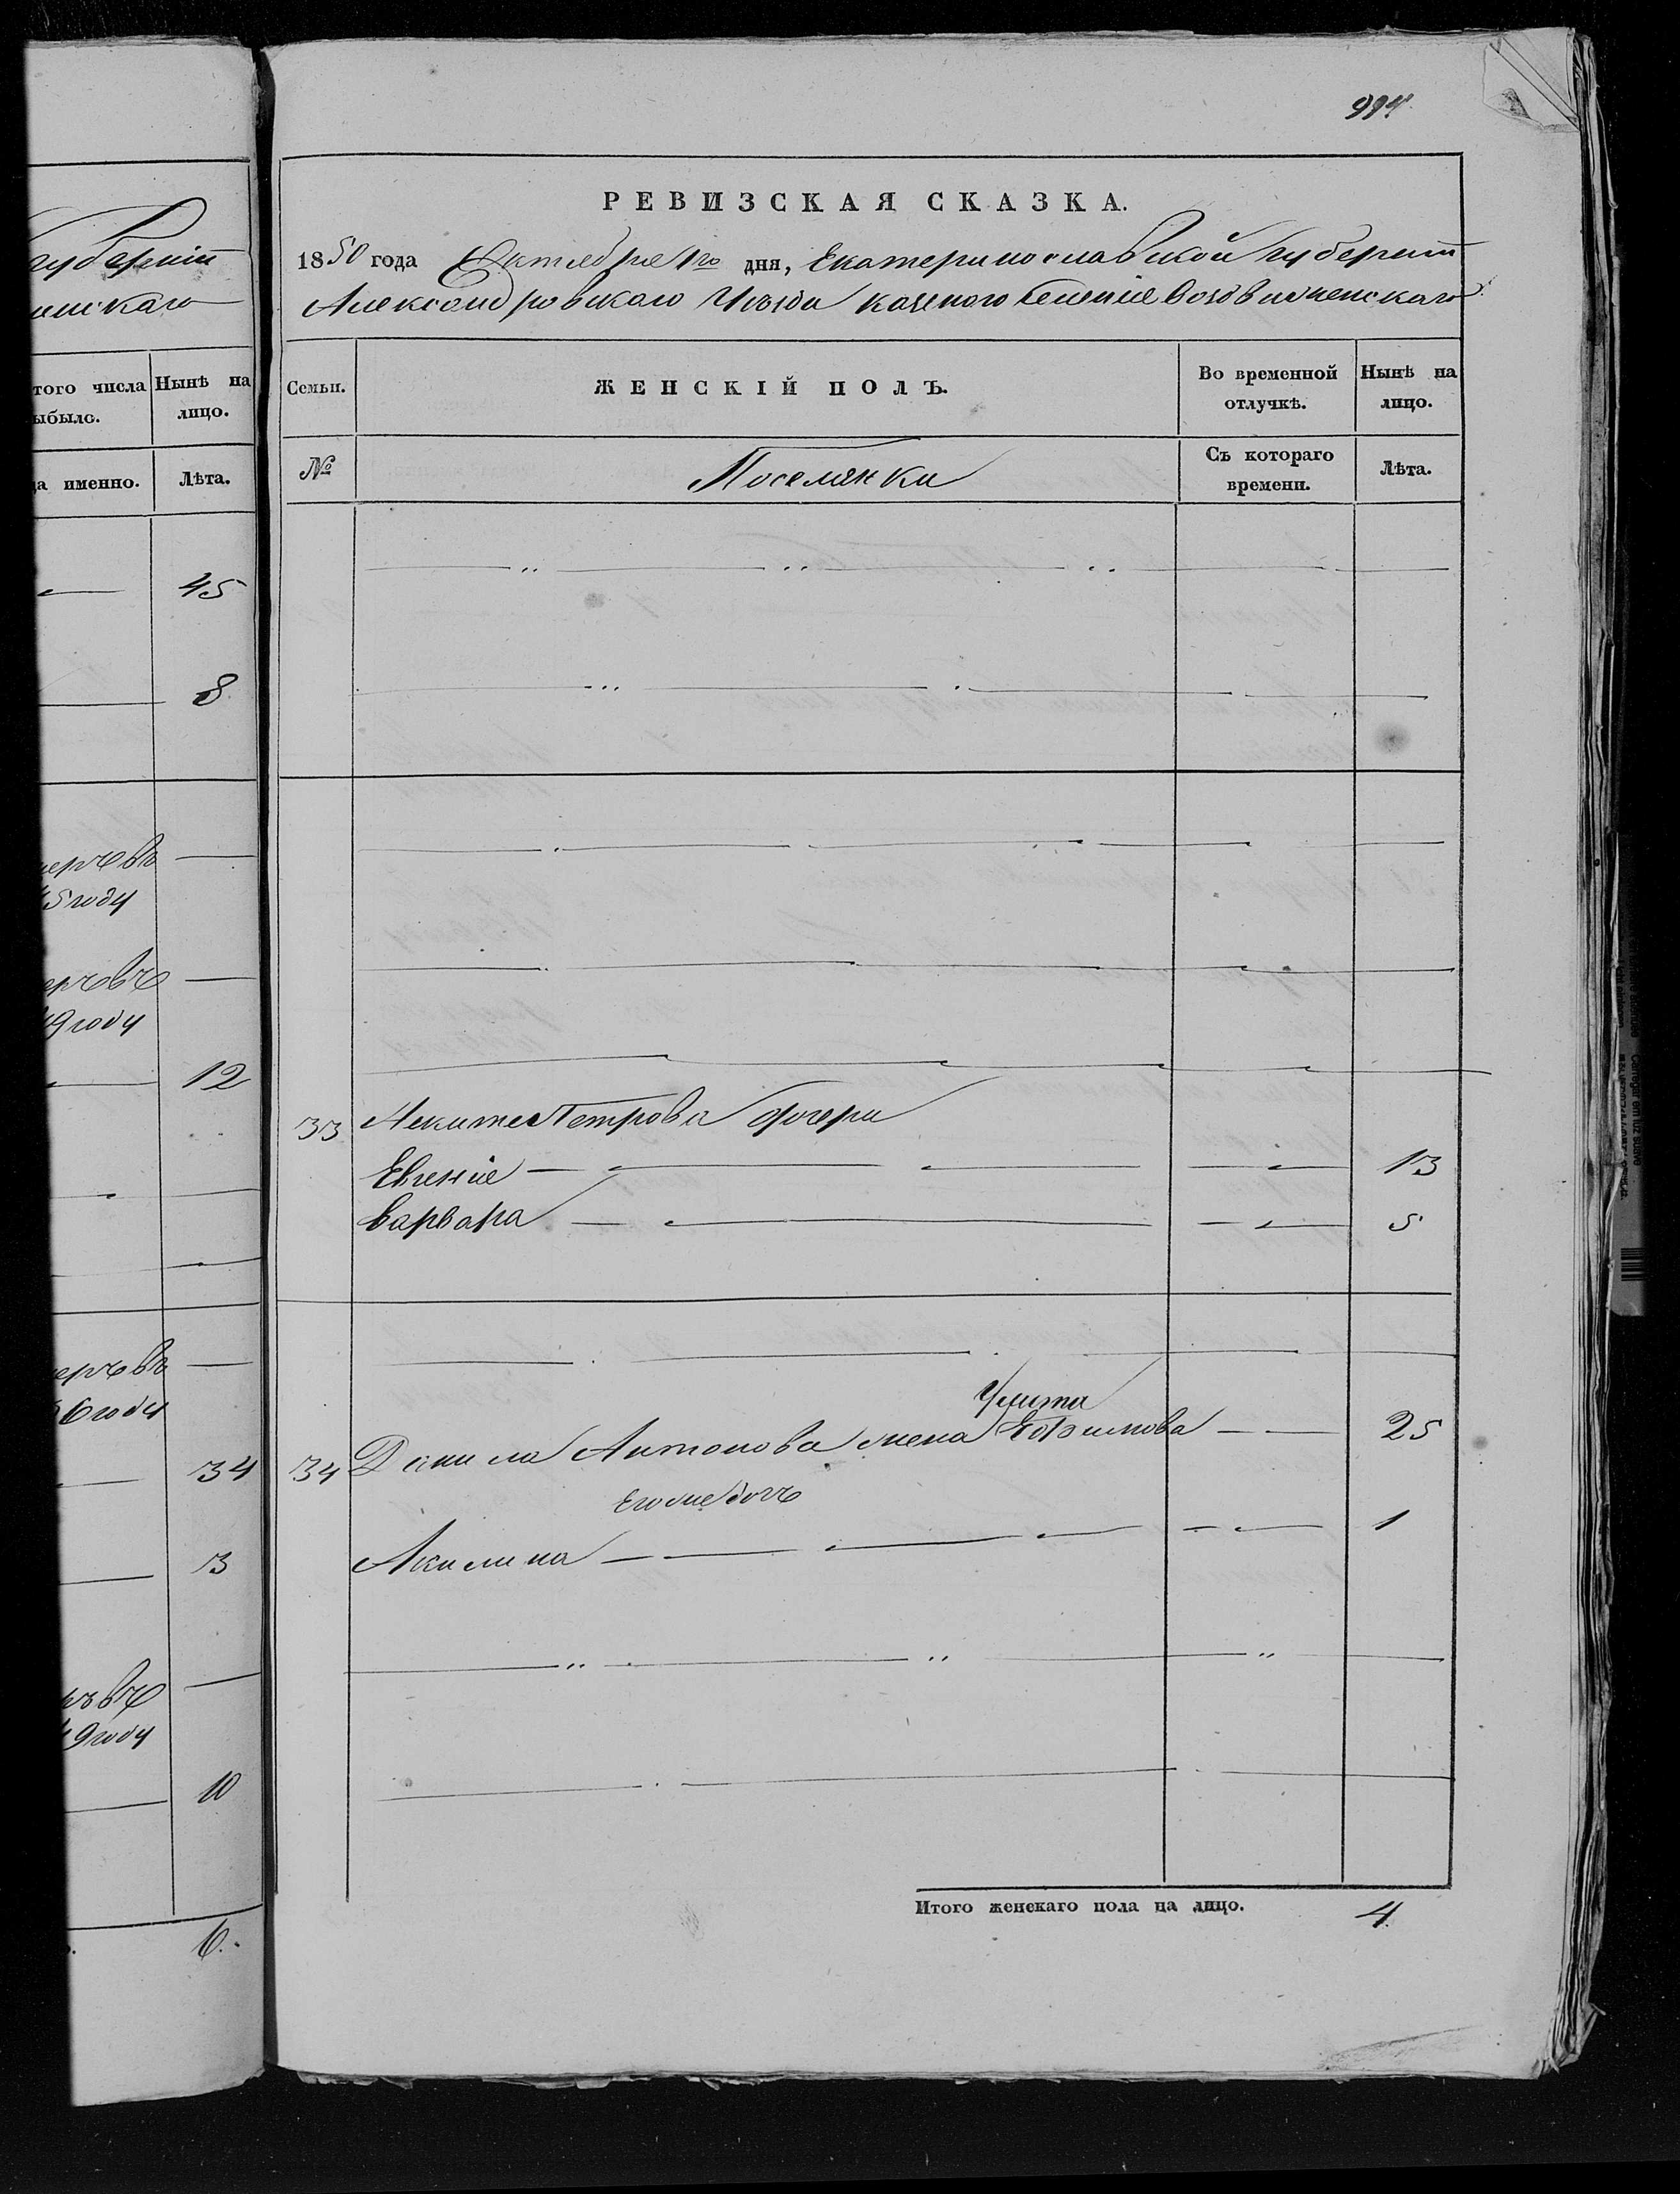 994
РЕВИЗСКАЯ СКАЗКА.
1850 года Октября 1го дня, Екатеринославской Губернiи
Александровскаго Уѣзда казеннаго селенiя Воздвиженскаго
губернiи
того числа Нынѣ на
лицо.
ыбыло.
да именно. Лѣта.
Семьи. ЖЕНСКIЙ ПОЛЪ. Во временной отлучкѣ. Нынѣ на лицо.
№ Поселянки Съ котораго времени. Лѣта.
45
8
5 году
9 году
12
33 Никиты Петрова дочери
Евгенiя 13
Варвара 5
6 году
34
Улита
34 Данила Антонова жена Ефимова 25
Его же дочь
Акилина 1
3
9 году
10
Итого женскаго пола на лицо. 4.
6.